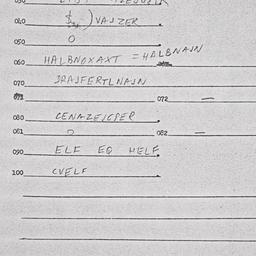 040 $ ) VAJZER
050 0
060 HALBNOXAXT = HALBNAJN
070 DRAJFERTLNAJN
071 072 —
080 CENAZEJGPER
081 0 082 —
090 ELF EQ HELF
100 CVELF